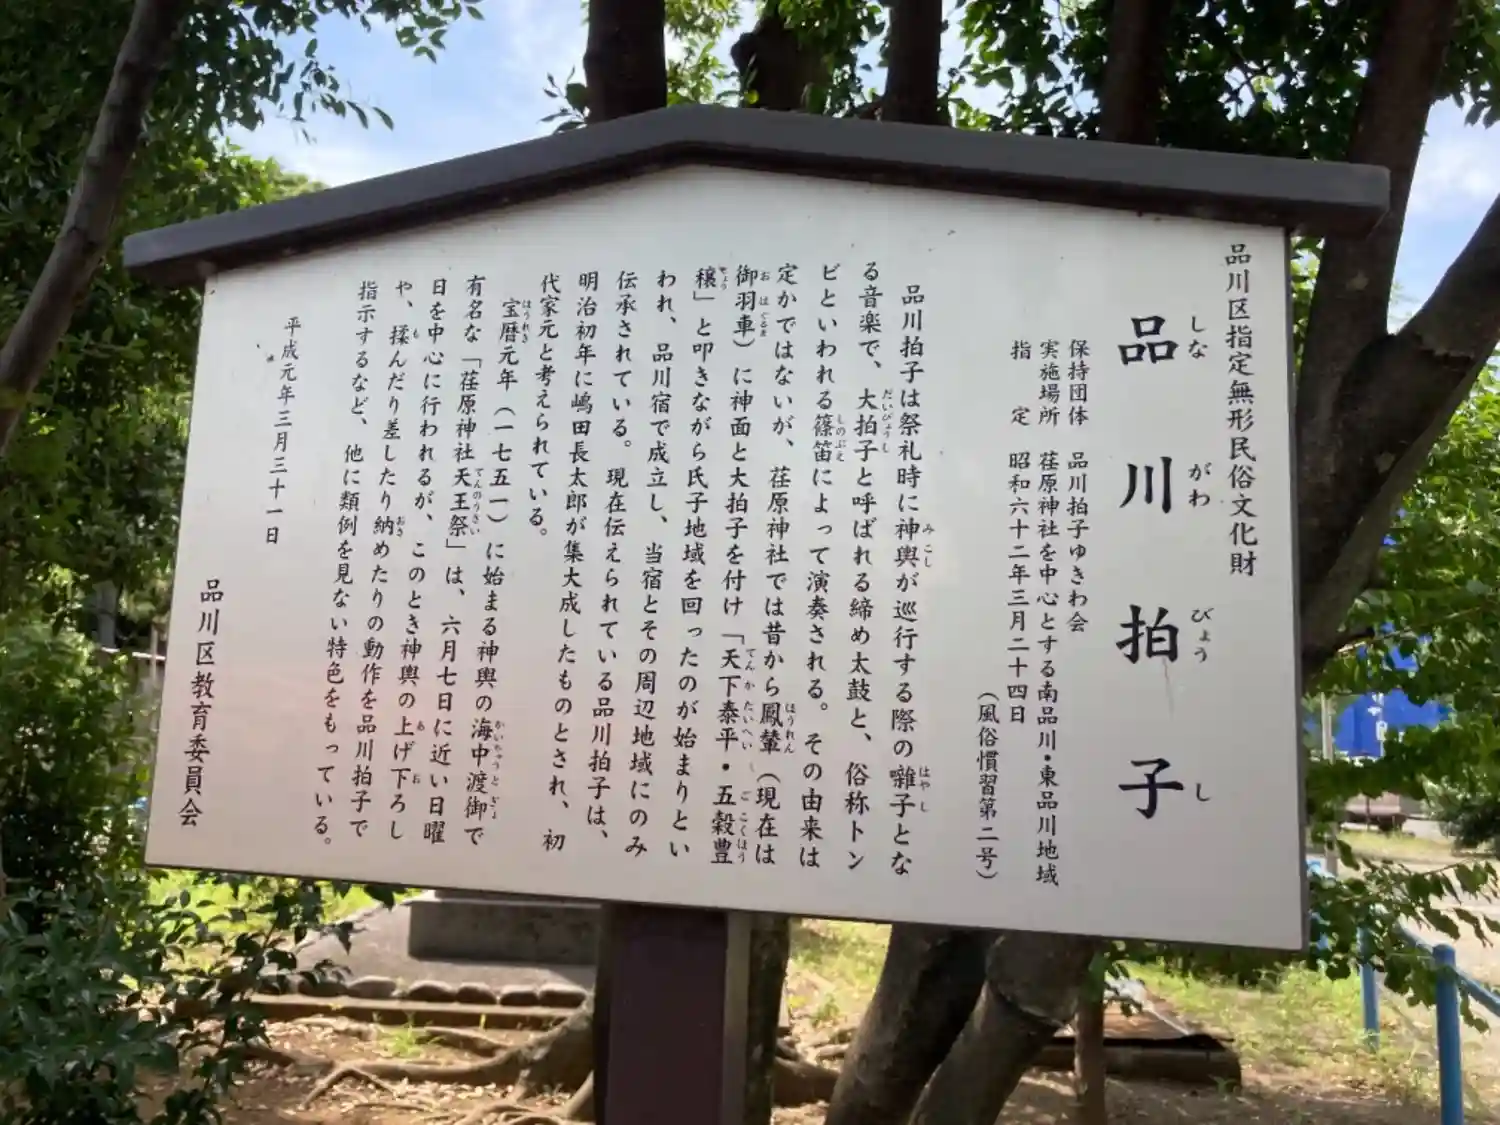 品川区指定無形民俗文化財
品川拍子
しながわびょうし
保持団体　品川拍子ゆきわ会
実施場所　荏原神社を中心とする南品川・東品川地域
指　定　昭和六十二年三月二十四日
（風俗慣習第二号）
品川拍子は祭礼時に神輿が巡行する際の囃子とな
る音楽で、大拍子と呼ばれる締め太鼓と、俗称トン
ビといわれる篠笛によって演奏される。その由来は
定かではないが、荏原神社では昔から鳳輦（現在は
御羽車）に神面と大拍子を付け「天下泰平・五穀豊
穣」と叩きながら氏子地域を回ったのが始まりとい
われ、品川宿で成立し、当宿とその周辺地域にのみ
伝承されている。現在伝えられている品川拍子は、
明治初年に嶋田長太郎が集大成したものとされ、初
代家元と考えられている。
宝暦元年（一七五一）に始まる神輿の海中渡御で
有名な「荏原神社天王祭」は、六月七日に近い日曜
日を中心に行われるが、このとき神輿の上げ下ろし
や、揉んだり差したり納めたりの動作を品川拍子で
指示するなど、他に類例を見ない特色をもっている。
平成元年三月三十一日
品川区教育委員会